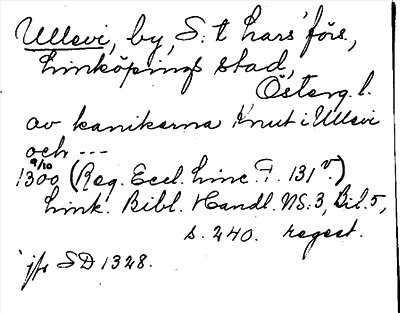 Ullevi, by, S:t Lars' förs.,
Linköpings stad,
Österg. l.
av kanikerna Knut i Ullevi
och ---
9/10
1300 (Reg. Eccl. Linc. F. 131 v.)
Link. Bibl. Handl. NS:3, Bil. 5,
s. 240. regest.
jfr SD 1328.